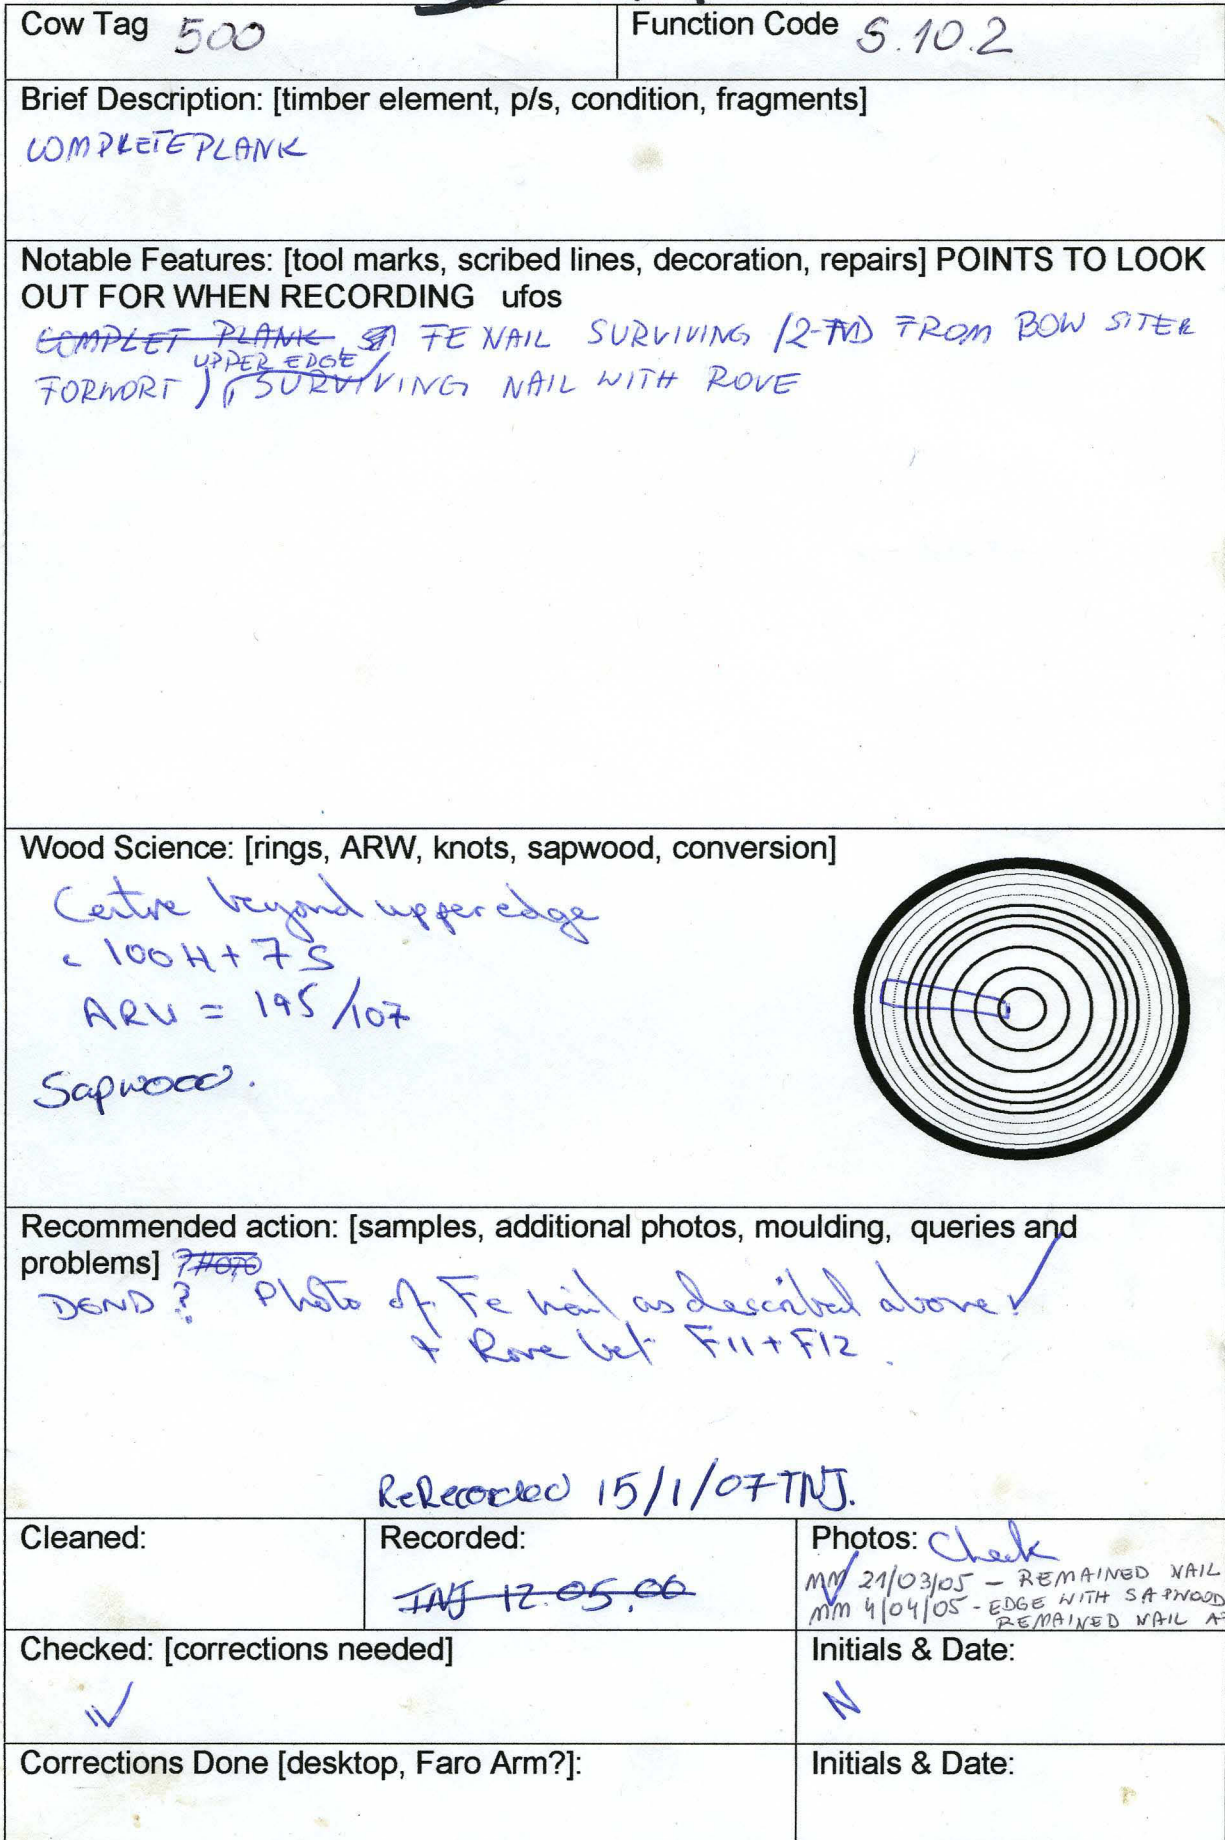 Cow Tag 500
Function Code S.10.2
Brief Description: [timber element, p/s, condition, fragments]
COMPLETE PLANK
Notable Features: [tool marks, scribed lines, decoration, repairs] POINTS TO LOOK
OUT FOR WHEN RECORDING ufos
COMPLET PLANK FE NAIL SURVIVING /2-ND FROM BOW SITER
UPPER EDGE
FORWORT ) SURVIVING NAIL WITH ROVE
Wood Science: [rings, ARW, knots, sapwood, conversion]
Centre beyond upper edge
c 100H + 7S
ARW = 195/107
Sapwood.
Recommended action: [samples, additional photos, moulding, queries and
problems] PHOTO
DEND? Photo of Fe nail as described above ✓
+ Rove bet F11 + F12.
ReRecorded 15/1/07 TNJ.
Cleaned:
Recorded:
TNJ 12.05.06
Photos: Check
MM 21/03/05 - REMAINED NAIL
MM 4/04/05 - EDGE WITH SAPWOOD
REMAINED NAIL
Checked: [corrections needed]
✓
Initials & Date:
N
Corrections Done [desktop, Faro Arm?]:
Initials & Date: